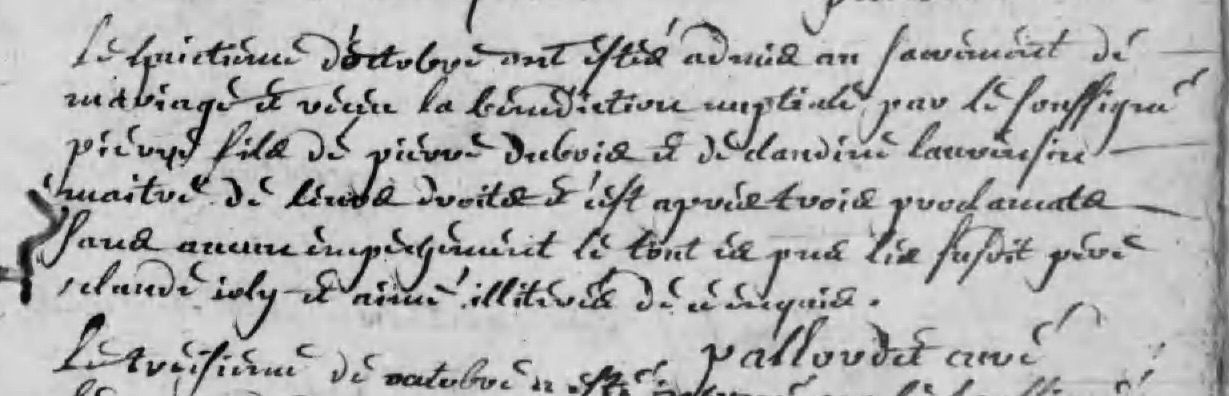 Le huictieme d'octobre ont estés admis au sacrement de
mariage et receu la benediction nuptiale par le soussigné
pierre fils de pierre Dubois et de claudine
maitre de leurs droits et c'est apres trois proclamats
sans aucun empechement le tout es pns les susdit pere
claude joly et aimé illiterés de ce enquis.
pallordet curé
Le treisieme de octobre a esté